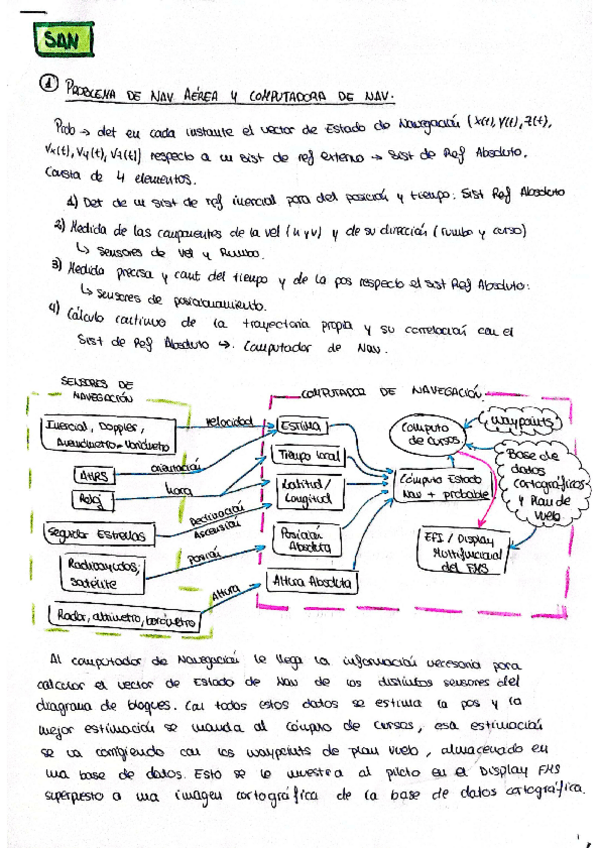 SAN
① PROBLEMA DE NAV AÉREA Y COMPUTADORA DE NAV.
Prob → det en cada instante el vector de Estado de Navegación (x(t), y(t), z(t),
Vx(t), Vy(t), Vz(t)) respecto a un sist de ref externo → Sist de Ref Absoluto.
Consta de 4 elementos.
1) Det de un sist de ref inercial para det posición y tiempo: Sist Ref Absoluto
2) Medida de las componentes de la vel (u y v) y de su dirección (rumbo y curso)
↳ sensores de vel y Rumbo.
3) Medida precisa y cont del tiempo y de la pos respecto el sist Ref Absoluto:
↳ sensores de posicionamiento.
4) Cálculo continuo de la trayectoria propia y su correlación con el
Sist de Ref Absoluto → Computador de Nav.
SENSORES DE
NAVEGACIÓN
COMPUTADOR DE NAVEGACIÓN
Inercial, Doppler,
Anemómetro-Variómetro
velocidad
ESTIMA
Computo
de cursos
Waypoints
AHRS
orientación
Tiempo local
Base de
datos
cartográficos
y Plan de
vuelo
Reloj
hora
Latitud/
Longitud
Cómputo Estado
Nav + probable
Seguidor Estrellas
Declinación
Ascensión
Posición
Absoluta
EFI / Display
Multifuncional
del FMS
Radioayudas,
satélite
Posición
Altura Absoluta
Radar, altímetro, barómetro
Altura
Al computador de Navegación le llega la información necesaria para
calcular el vector de Estado de Nav de los distintos sensores del
diagrama de bloques. Con todos estos datos se estima la pos y la
mejor estimación se manda al cómputo de cursos, esa estimación
se va corrigiendo con los waypoints de plan vuelo, almacenado en
una base de datos. Esto se le muestra al piloto en el Display FMS
superpuesto a una imagen cartográfica de la base de datos cartográfica.